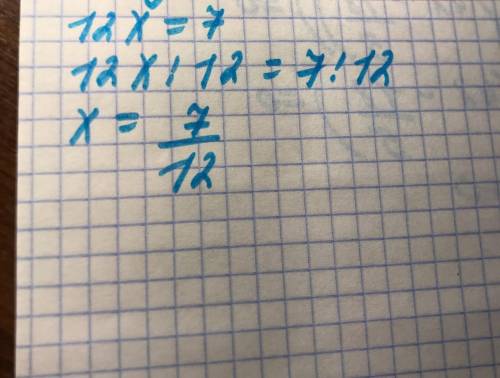 12x = 7
12x : 12 = 7 : 12
x = 7/12